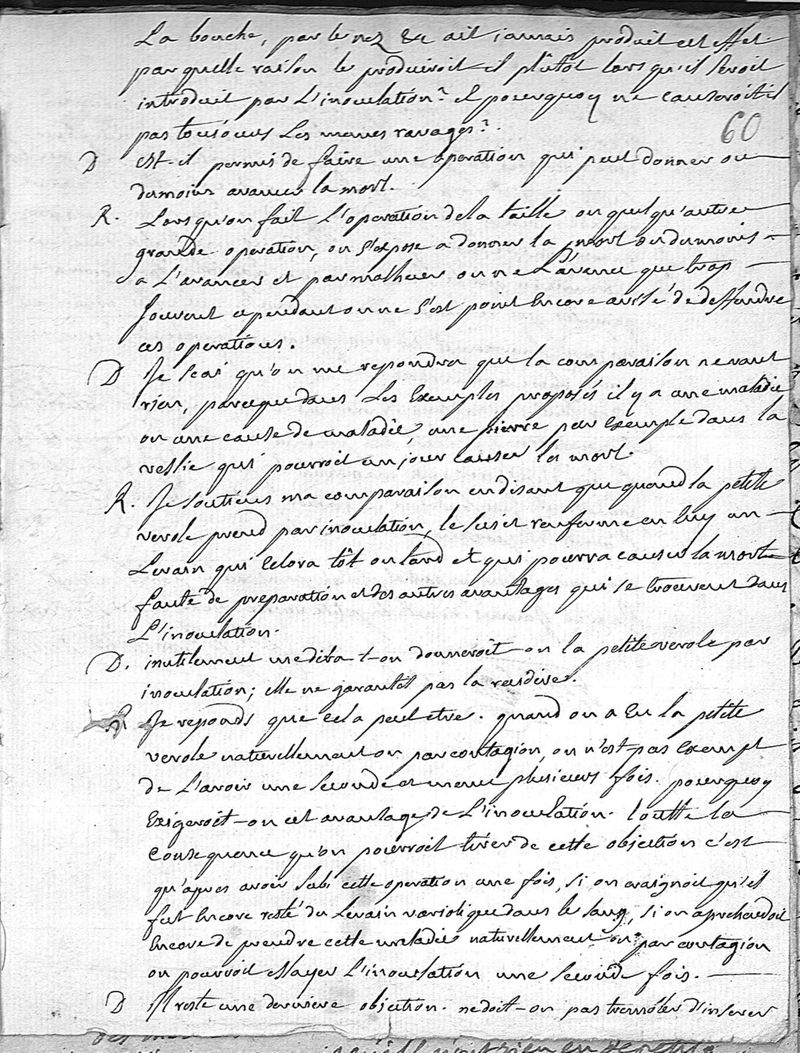 La bouche, par le nez &c ait jamais produit cet effet
par quelle raison le produiroit il plûtôt lors qu'il seroit
introduit par L'inoculation? et pourquoy ne causeroit il
pas toujours Les memes ravages?
60
D est-il permis de faire une operation qui peut donner ou
dumoins avancer la mort.
R. Lorsqu'on fait L'operation de la taille ou quelqu'autre
grande operation, on s'expose a donner la mort ou dumoins
a L'avancer et par malheur on ne L'avance que trop
souvent cependant on ne s'est point Encore avisé de deffendre
ces operations.
D Je scai qu'on me repondra que la comparaison ne vaut
rien, parceque dans Les Exemples proposés il y a une maladie
ou une cause de maladie, une pierre par Exemple dans la
vessie qui pourroit un jour causer la mort.
R. Je soutiens ma comparaison en disant que quand la petite
verole prend par inoculation, le sujet renferme en luy un
Levain qui Eclora tôt ou tard et qui pourra causer la mort
faute de preparation et des autres avantages qui se trouvent dans
L'inoculation.
D. inutilement me dira-t-on donneroit-on la petite verole par
inoculation; elle ne garantit pas la recidive.
R Je reponds que cela peut etre. quand on a Eu la petite
verole naturellement ou par contagion, on n'est pas Exempt
de L'avoir une seconde et meme plusieurs fois. pourquoy
Exigeroit-on cet avantage de L'inoculation. toutte la
Consequence qu'on pourroit tirer de cette objection c'est
qu'apres avoir subi cette operation une fois, si on craignoit qu'il
fut Encore resté du Levain variolique dans le sang, si on aprehendoit
Encore de prendre cette maladie naturellement ou par contagion
on pourroit Essayer L'inoculation une seconde fois.
D Il reste une derniere objection. ne doit-on pas trembler d'inserer